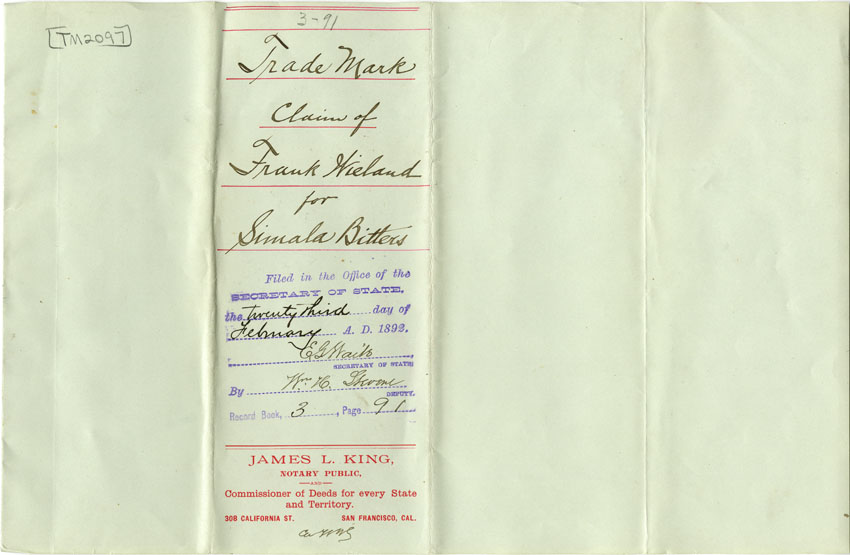 TM2097
3-91
Trade Mark
Claim of
Frank Wieland
for
Simala Bitters
Filed in the Office of the
SECRETARY OF STATE,
the twenty third day of
February A. D. 1892,
E G Waite
SECRETARY OF STATE
By Wm H.
DEPUTY.
Record Book, 3, Page 91
JAMES L. KING,
NOTARY PUBLIC,
AND
Commissioner of Deeds for every State
and Territory.
308 CALIFORNIA ST. SAN FRANCISCO, CAL.